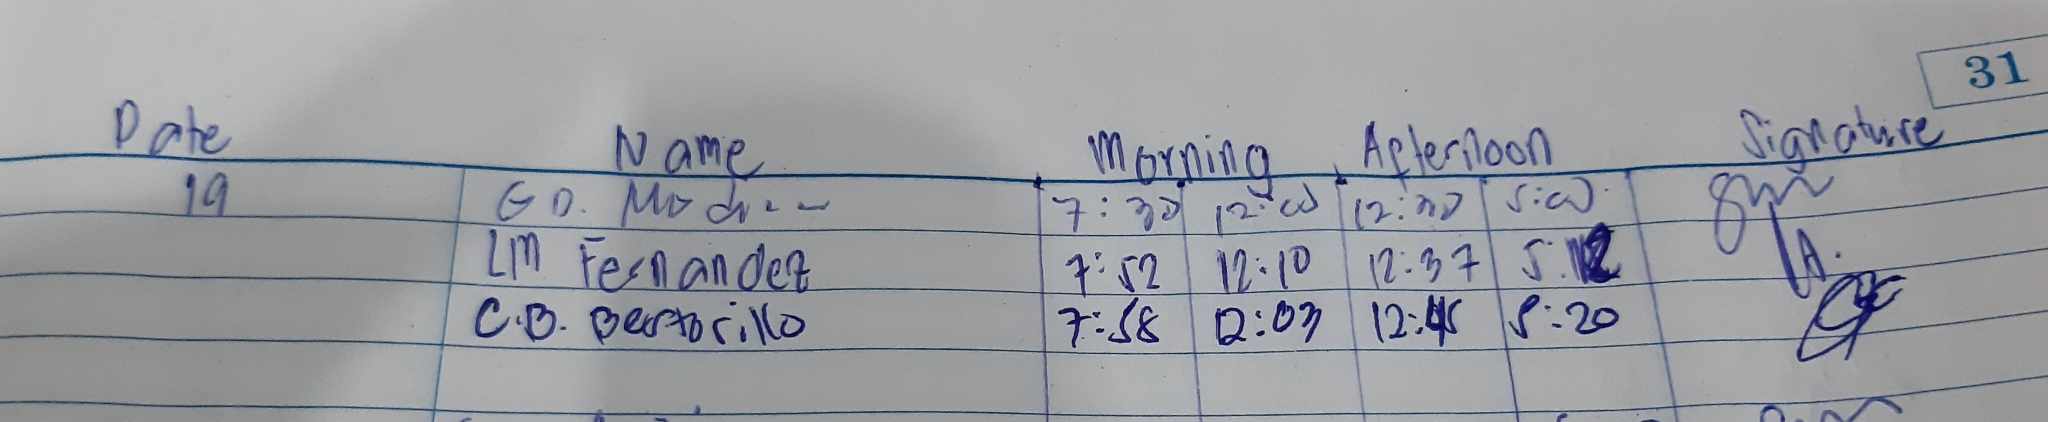 31
Date Name Morning Afternoon Signature
19 G D. 7:30 12:00 12:30 5:00
LM Fernandez 7:52 12:10 12:37 5:12
C.B. Bertorillo 7:58 12:03 12:45 5:20